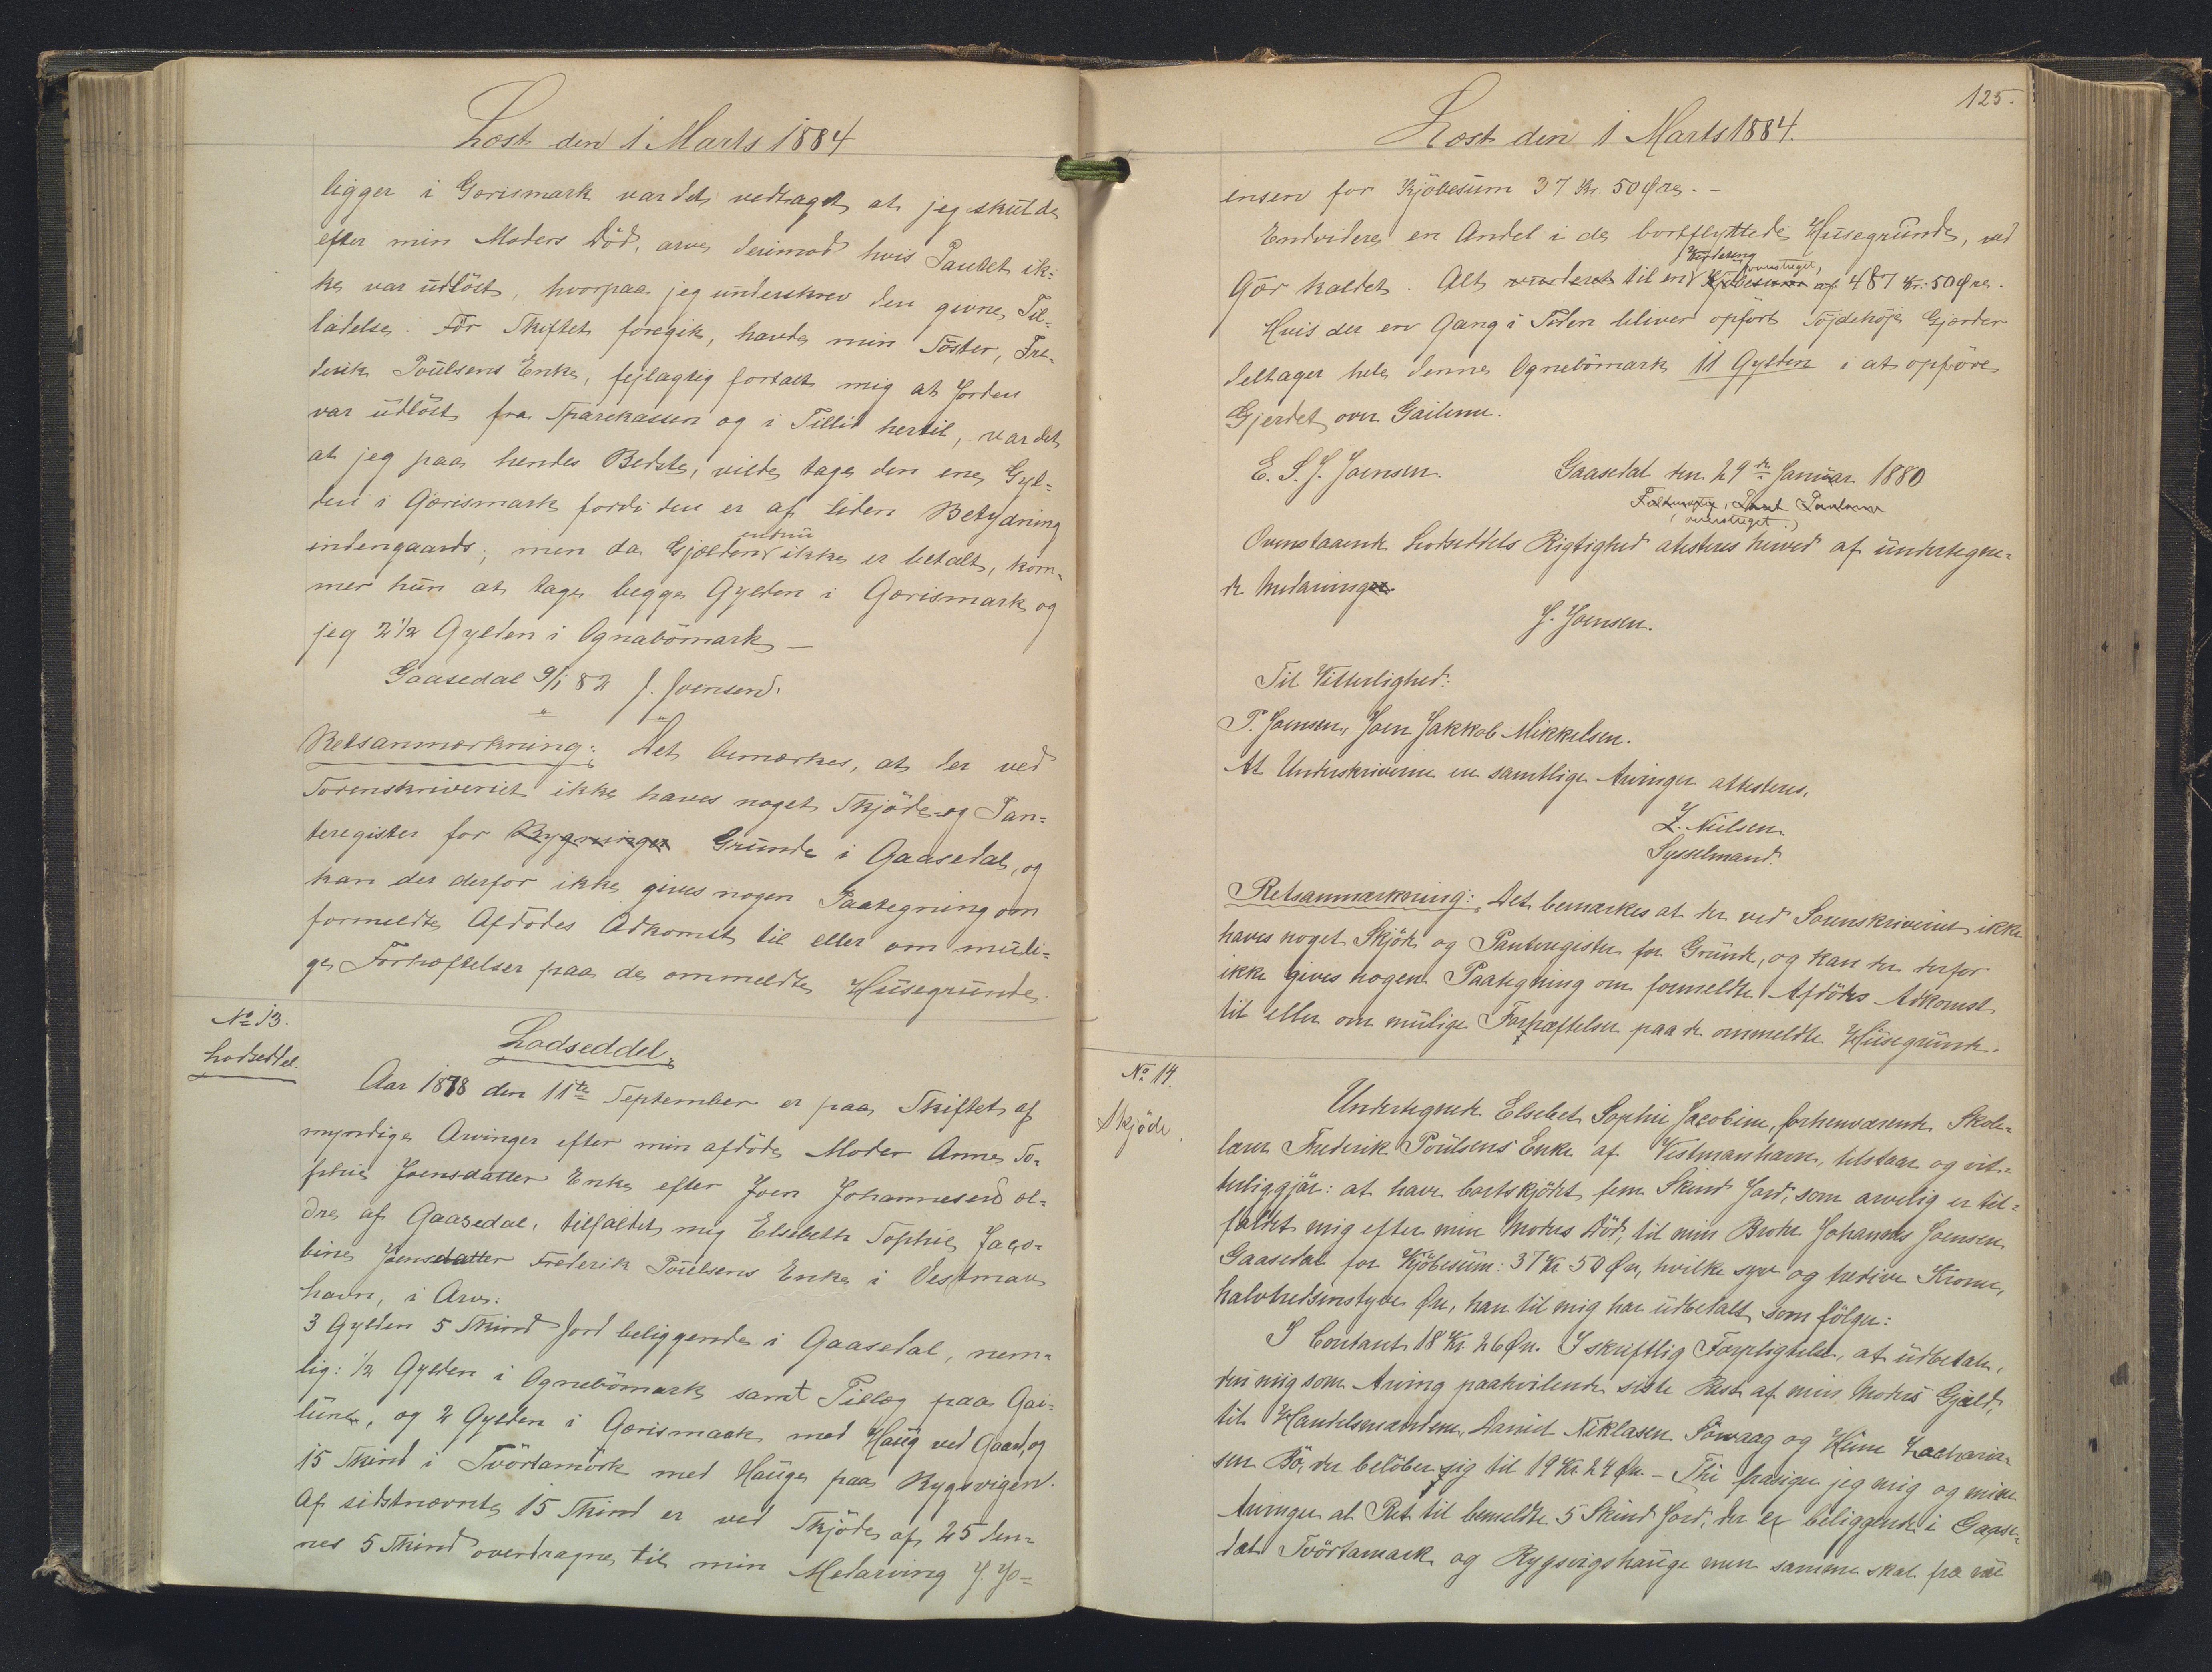 Læst den 1 Marts 1884
ligger i Gørismark var det vedtaget at jeg skulde
efter min Moders Död, arve derimod hvis Pantet ik-
ke var udlöst, hvorpaa jeg underskrev den givne Til-
ladelse. För Skiftet foregik, havde min Söster, Fre-
derik Poulsens Enke, fejlagtig fortalt mig at Jorden
var udlöst fra Sparekassen og i Tillid hertil, var det
at jeg paa hendes Bedste, vilde tage den ene Gyl-
den i Gørismark fordi den er af liden Betydning
indengaards; men da Gjælden endnu ikke er betalt, kom-
mer hun at tage begge Gylden i Gørismark og
jeg 2 1/2 Gylden i Ognabömark –
Gaasedal 9/1 82 J. Joensen.
Retsanmærkning: Det bemærkes, at der ved
Sorenskriveriet ikke haves noget Skjöde- og Pan-
teregister for Bygninger Grunde i Gaasedal, og
kan der derfor ikke gives nogen Paategning om
formeldte Afdödes Adkomst til eller om muli-
ge Forhæftelser paa de ommeldte Husegrunde.
No 13.
Lodseddel.
Lodseddel.
Aar 1878 den 11te September er paa Skiftet af
myndige Arvinger efter min afdöde Moder Anne So-
phie Joensdatter Enke efter Joen Johannesen æl-
dre af Gaasedal, tilfaldet mig Elsebeth Sophie Jaco-
bine Joensdatter Frederik Poulsens Enke i Vestman-
havn, i Arv:
3 Gylden 5 Skind Jord beliggende i Gaasedal, nem-
lig: 1/2 Gylden i Ognebömark samt Tillæg paa Gai-
lune, og 2 Gylden i Gørismark med Haug ved Gaard, og
15 Skind i Tvörtamörk med Hauge paa Rygsvigen.
Af sidstnævnte 15 Skind er ved Skjöde af 25 den-
nes 5 Skind overdragne til min Medarving J. Jo-
125.
Læst den 1 Marts 1884.
ensen for Kjöbesum 37 Kr. 50 Øre. –
Endvidere en Andel i de bortflyttede Husegrunde, ved
Gør kaldet. Alt vurderet til en Vurdering Kjöbesum (overstreget) af 487 Kr. 50 Øre.
Hvis der en Gang i Tiden bliver opfört Töjdehöje Gjærder
deltager hele denne Ognebömark 11 Gylden i at opföre
Gjerdet over Gailune.
E. S. J. Joensen. Gaasedal den 29de Januar 1880
(overstreget.)
Ovenstaaende Lodseddels Rigtighed atesteres herved af undertegne-
de Medarvinger
J. Joensen.
Til Vitterlighed:
P. Joensen, Joen Jakkob Mikkelsen.
At Underskriverne ere samtlige Arvinger attesteres.
Z. Nielsen.
Sysselmand.
Retsanmærkning: Det bemærkes at der ved Sorenskriveriet ikke
haves noget Skjöde og Panteregister for Grunde, og kan der derfor
ikke gives nogen Paategning om formeldte Afdödes Adkomst
til eller om mulige Forhæftelser paa de ommeldte Husegrunde.
No 14.
Skjöde.
Undertegnede Elsebet Sophie Jacobine, forhenværende Skole-
lærer Frederik Poulsens Enke af Vestmanhavn, tilstaar og vit-
terliggjör: at have bortskjödet fem Skind Jord, som arvelig er til-
faldet mig efter min Moders Död, til min Broder Johannes Joensen
Gaasedal for Kjöbesum: 37 Kr 50 Øre, hvilke syv og tredive Kroner,
halvtredsinstyve Øre, han til mig har udbetalt som fölger:
I Contant 18 Kr. 26 Øre. I skriftlig Forpligtelse, at udbetale,
den mig som Arving paahvilende sidste Rest af min Moders Gjæld,
til Handelsmændene, Daniel Niklasen Sörvaag og Hune Zacharia-
sen Bö, der belöber sig til 19 Kr. 24 Øre – Thi frasiger jeg mig og mine
Arvinger al Ret til bemeldte 5 Skind Jord, der er beliggende i Gaase-
dal Tvörtamark og Rygsvigshauge men samme skal fra nu